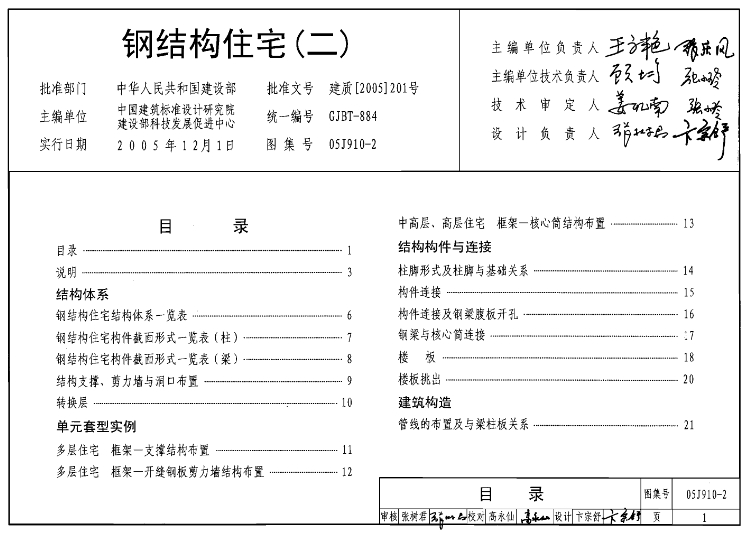 钢结构住宅(二)
批准部门 中华人民共和国建设部 批准文号 建质[2005]201号
主编单位 中国建筑标准设计研究院 建设部科技发展促进中心 统一编号 GJBT-884
实行日期 2005年12月1日 图集号 05J910-2
主编单位负责人
主编单位技术负责人
技术审定人
设计负责人
目 录
目录 1
说明 3
结构体系
钢结构住宅结构体系一览表 6
钢结构住宅构件截面形式一览表(柱) 7
钢结构住宅构件截面形式一览表(梁) 8
结构支撑、剪力墙与洞口布置 9
转换层 10
单元套型实例
多层住宅 框架—支撑结构布置 11
多层住宅 框架—开缝钢板剪力墙结构布置 12
中高层、高层住宅 框架—核心筒结构布置 13
结构构件与连接
柱脚形式及柱脚与基础关系 14
构件连接 15
构件连接及钢梁腹板开孔 16
钢梁与核心筒连接 17
楼 板 18
楼板挑出 20
建筑构造
管线的布置及与梁柱板关系 21
目 录 图集号 05J910-2
审核 张树君 校对 高永仙 设计 卞宗舒 页 1